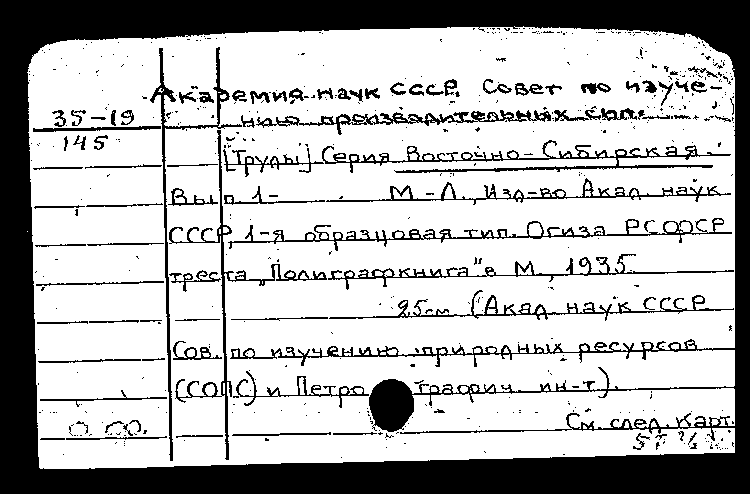 Академия наук СССР. Совет по изуче-
35-19 нию производительных сил.
145
[Труды] Серия Восточно-Сибирская.
Вып. 1- М.-Л., Изд-во Акад. наук
СССР, 1-я образцовая тип. Огиза РСФСР
треста „Полиграфкнига" в М., 1935
25см (Акад. наук СССР
Сов. по изучению природных ресурсов
(СОПС) и Петрографич. ин-т).
См. след. карт.